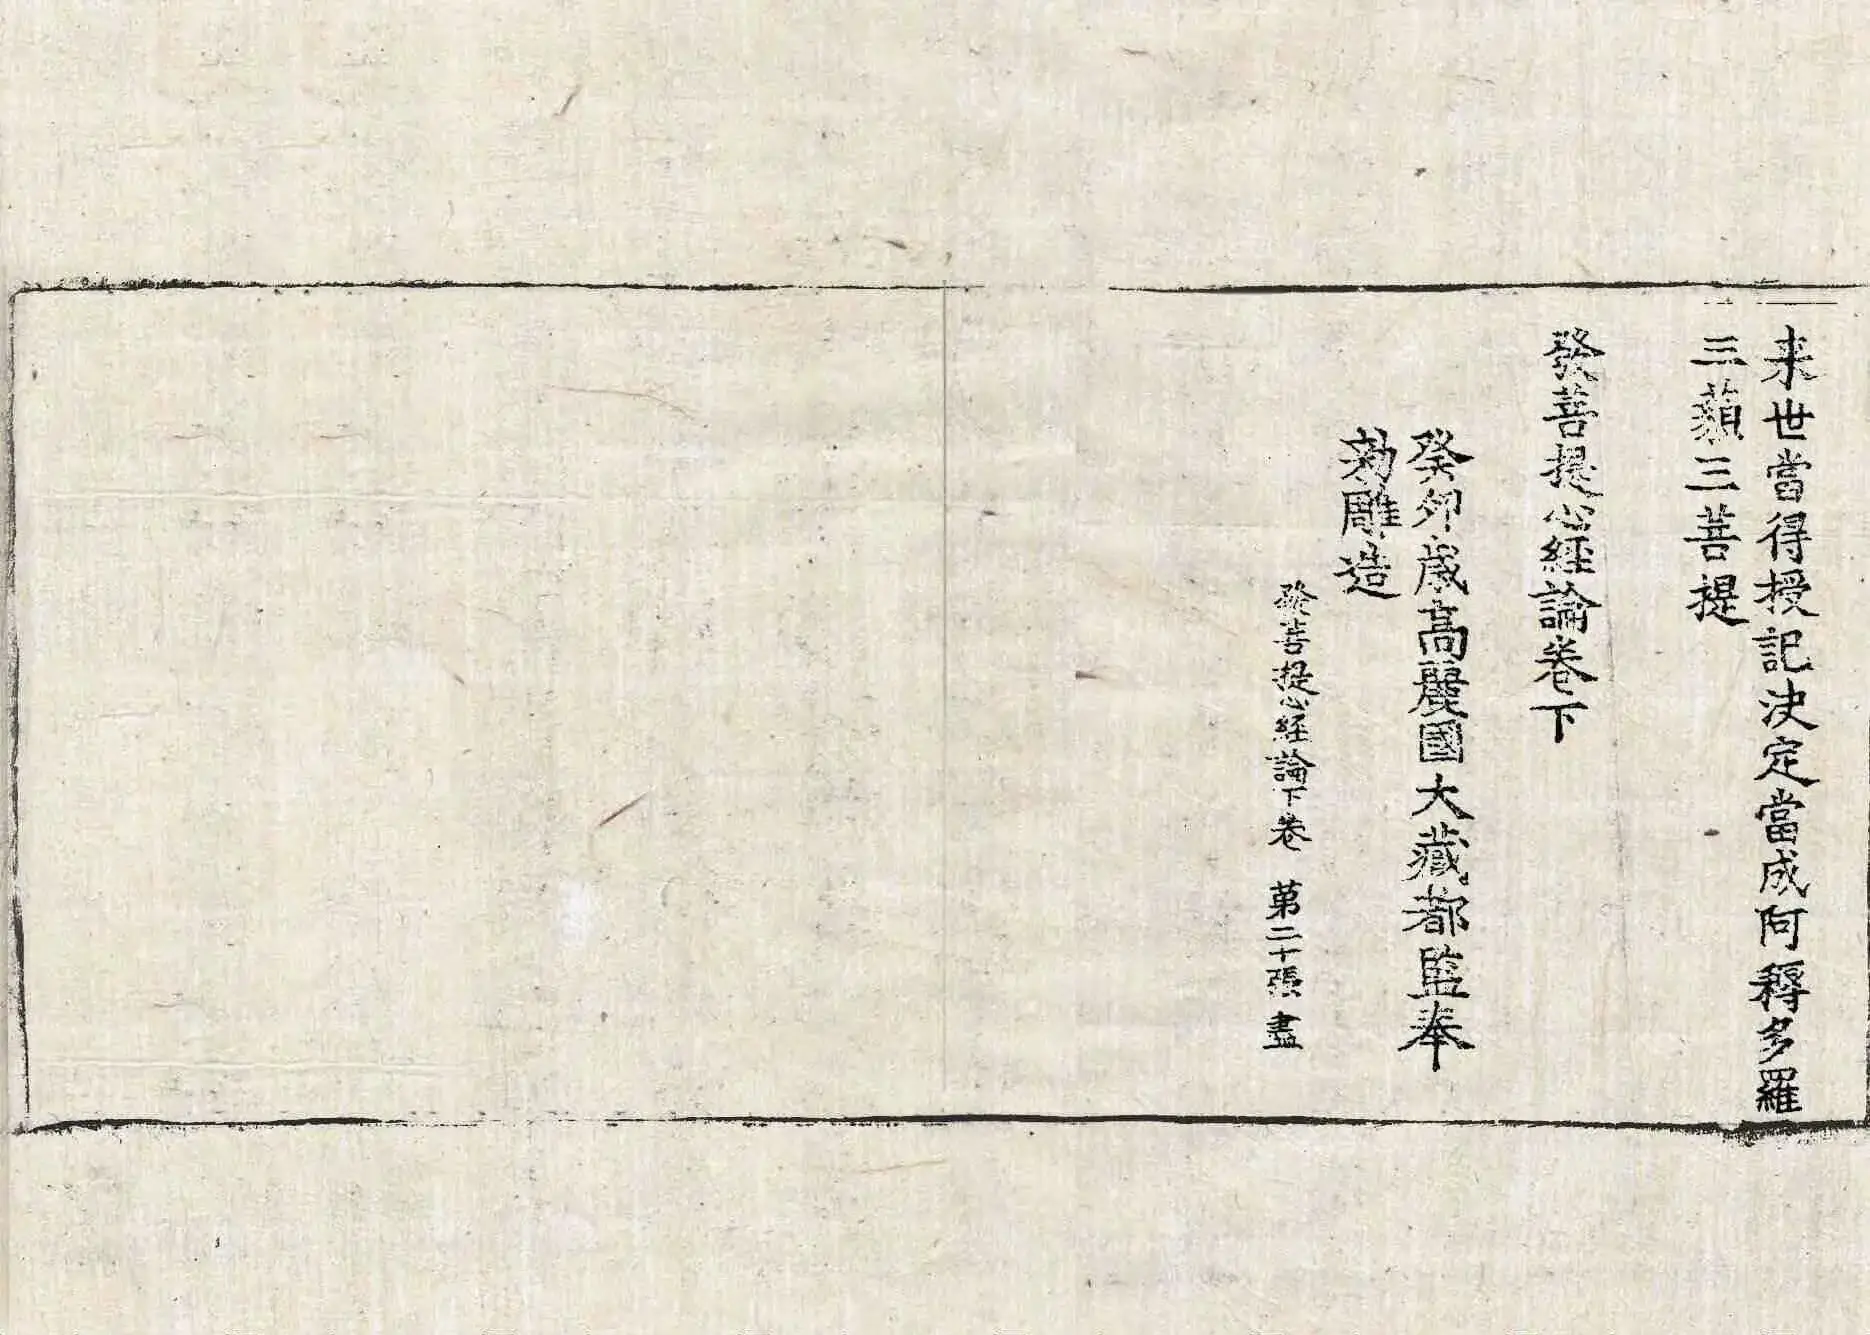 来世當得授記決定當成阿耨多羅
三藐三菩提
發菩提心経論卷下
癸卯歲高麗國大藏都監奉
勑雕造
發菩提心経論下卷 苐二十張 盡